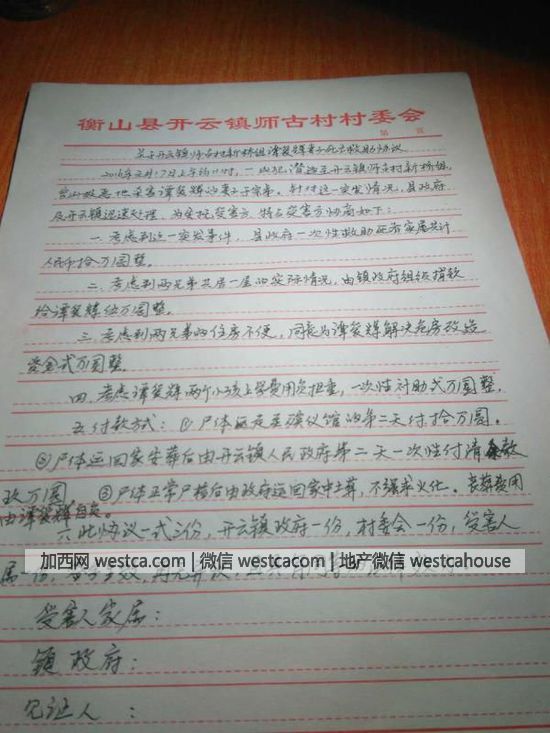 衡山县开云镇师古村村委会
第 页
关于开云镇师古村新桥组谭
2016年 月17日上午约11时,一凶犯潜逃至开云镇师古村新桥组,
针对这一突发情况,县政府
及开云镇迅速处理,为安抚受害方,特与受害方协商如下:
一、考虑到这一突发事件,县政府一次性救助死者家属共计
人民币拾万圆整。
二、考虑到两兄弟共居一屋的实际情况,由镇政府组织捐款
给谭 辉伍万圆整。
三、考虑到两兄弟的住房不便,同意为谭 辉解决危房改造
资金弍万圆整。
四、考虑谭 辉两个小孩上学费用负担重,一次性补助弍万圆整。
五、付款方式:①尸体运走至殡仪馆的第二天付拾万圆。
②尸体运回家安葬后由开云镇人民政府第二天一次性付清余款
玖万圆 ③尸体正常尸检后由政府运回家中土葬,不强求火化。丧葬费用
由谭 辉自负。
六、此协议一式三份,开云镇政府一份,村委会一份,受害人
加西网 westca.com | 微信 westcacom | 地产微信 westcahouse
受害人家属:
镇政府:
见证人: